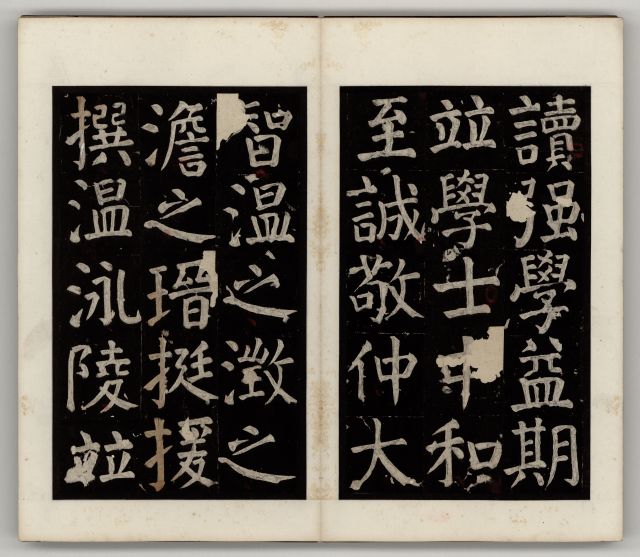 讀强學益期
竝學士中和
至誠敬仲大
智溫之澂之
澹之瑨挺援
撰温泳陵竝